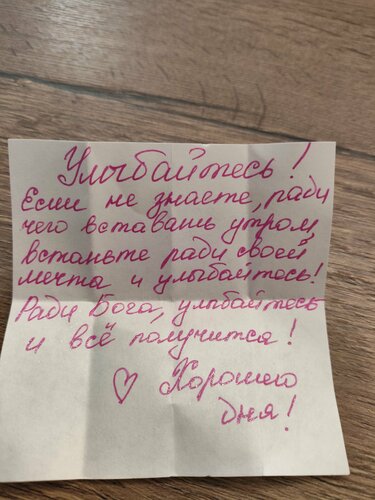 Улыбайтесь!
Если не знаете, ради
чего вставашь утром,
встаньте ради своей
мечта и улыбайтесь!
Ради Бога, улыбайтесь
и всё получится!
♡ Хорошего
дня!